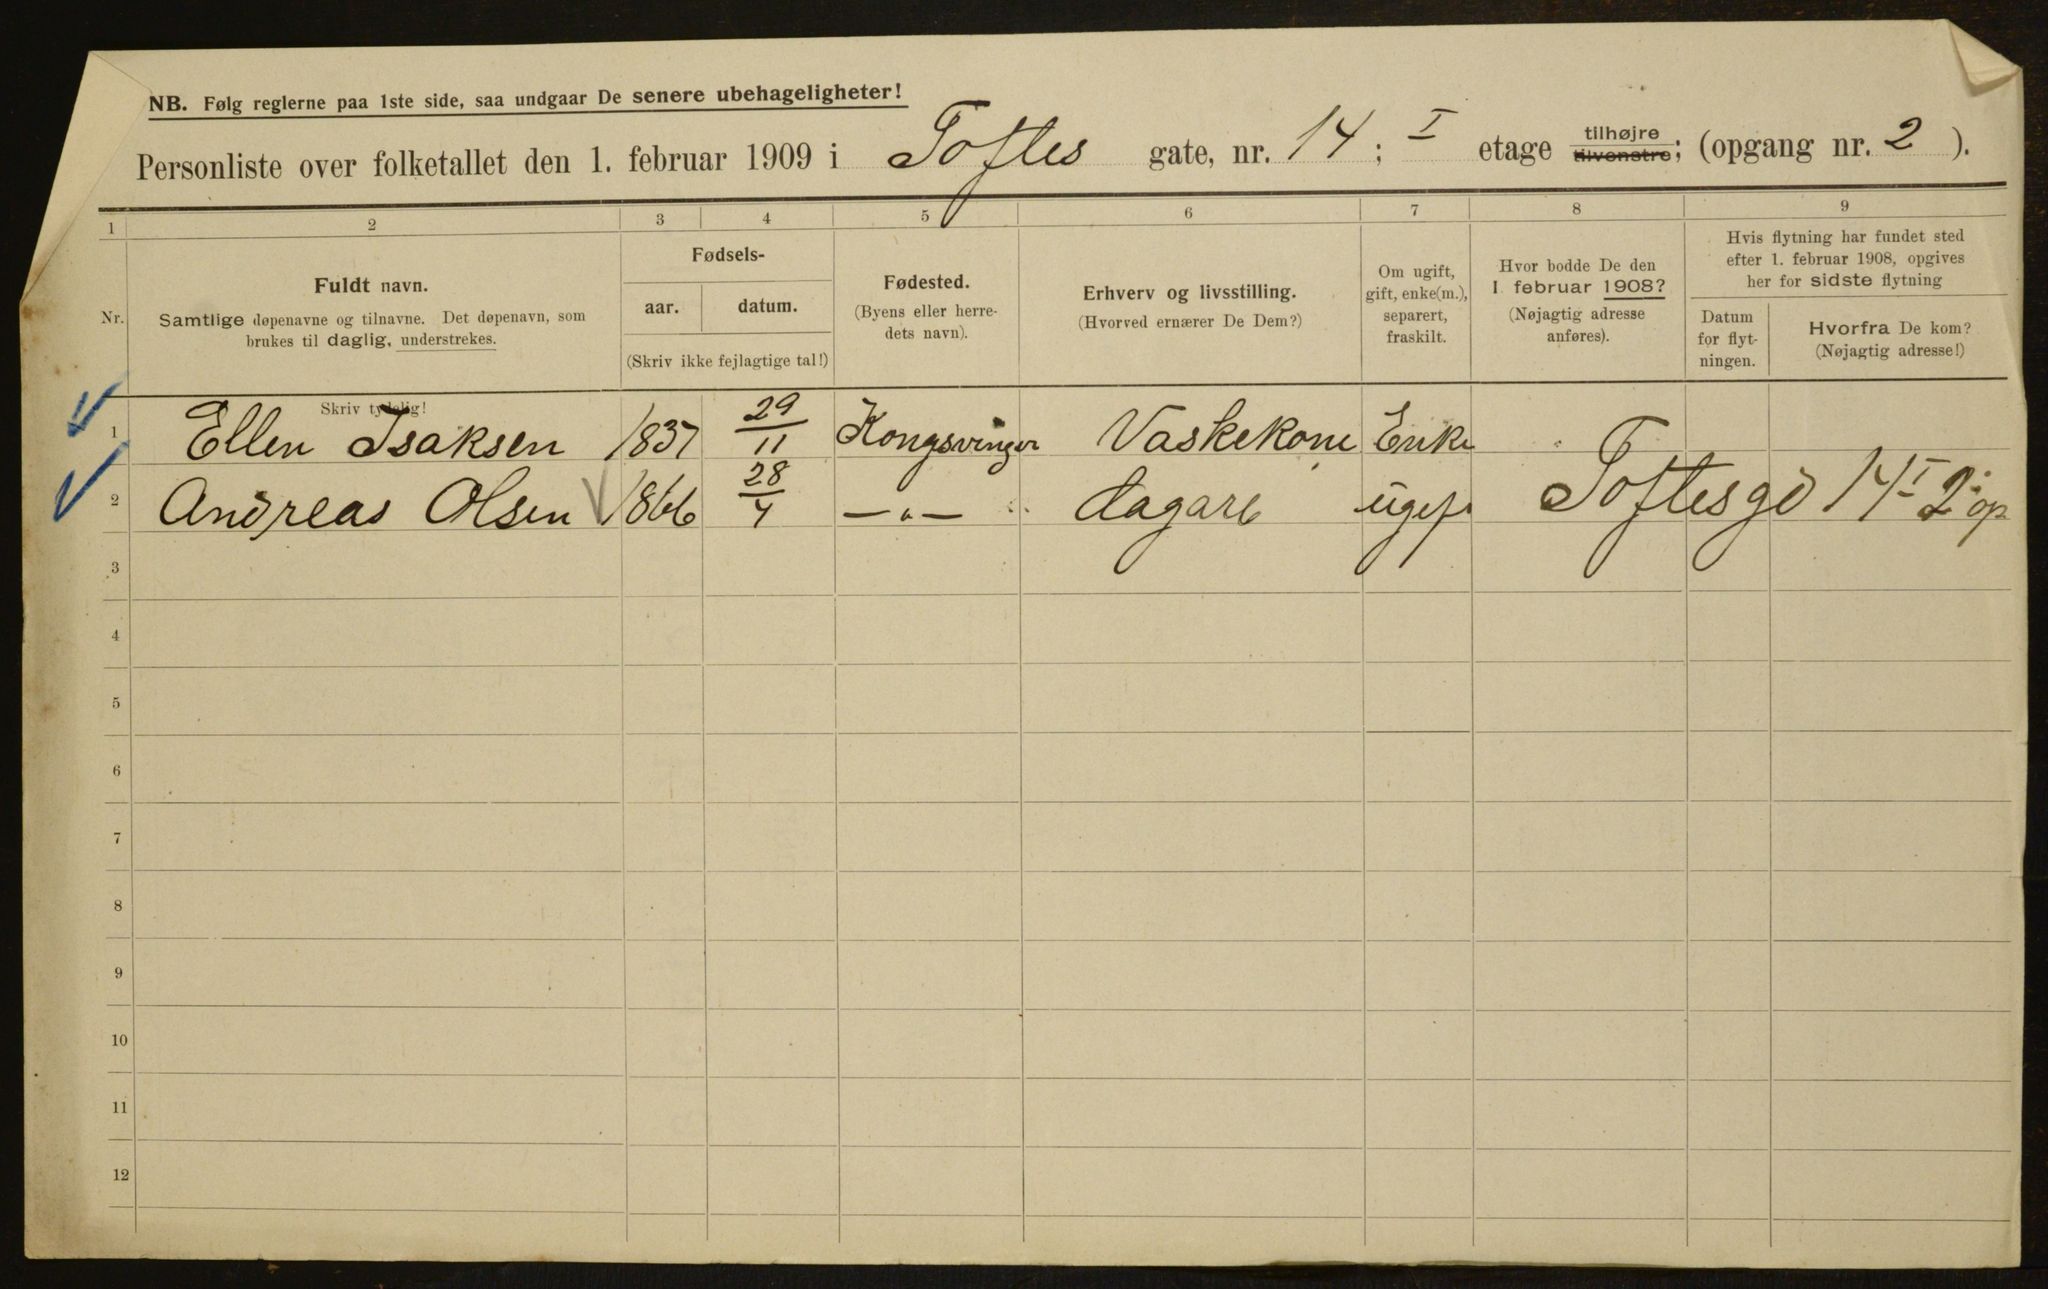 NB. Følg reglerne paa 1ste side, saa undgaar De senere ubehageligheter!
Personliste over folketallet den 1. februar 1909 i Toftes gate, nr. 14 ; I etage tilhøjre tilvenstre; (opgang nr. 2 ).
1 2 3 4 5 6 7 8 9
Nr.
Fuldt navn.
Samtlige døpenavne og tilnavne. Det døpenavn, som
brukes til daglig, understrekes.
Fødsels-
aar. datum.
(Skriv ikke fejlagtige tal!)
Fødested.
(Byens eller herre-
dets navn).
Erhverv og livsstilling.
(Hvorved ernærer De Dem?)
Om ugift,
gift, enke(m.),
separert,
fraskilt.
Hvor bodde De den
1 februar 1908?
(Nøjagtig adresse
anføres).
Hvis flytning har fundet sted
efter 1. februar 1908, opgives
her for sidste flytning
Datum
for flyt-
ningen.
Hvorfra De kom?
(Nøjagtig adresse!)
Skriv tydelig!
1 Ellen Isaksen 1837 29/11 Kongsvinger Vaskekone Enke
2 Andreas Olsen 1866 28/4 —"— dagarb ugift Toftesgd 14 I 2 op
3
4
5
6
7
8
9
10
11
12